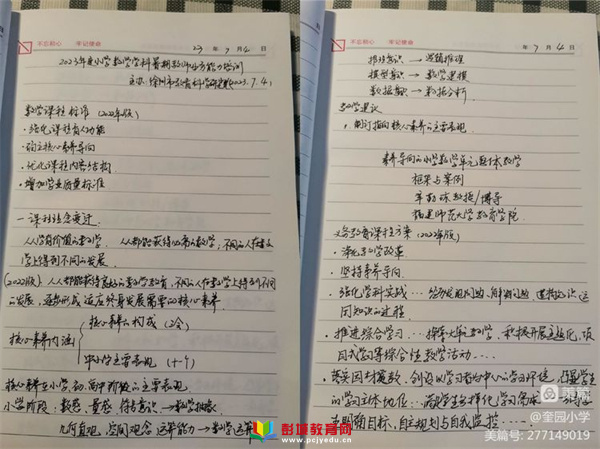 不忘初心 牢记使命
23 年 7 月 4 日
2023年度小学数学学科暑期教师能力培训
主办:徐州市教育科学研究院(2023.7.4)
数学课程标准(2022年版)
·强化课程育人功能
·确立核心素养导向
·优化课程内容结构
·增加学业质量标准
一 课程理念变迁
人人学有价值的数学 人人都能获得必需的数学,不同的人在数
学上得到不同的发展
(2022版)人人都能获得良好的数学教育,不同的人在数学上得到不同
的发展,逐步形成适应终身发展需要的核心素养
核心素养内涵
核心素养的构成(3会)
小学的主要表现(十一个)
核心素养在小学、初、高中阶段的主要表现
小学阶段:数感 量感 符号意识→数学抽象
几何直观、空间观念 运算能力→数学运算
不忘初心 牢记使命
年 7 月 4 日
推理意识→逻辑推理
模型意识→数学建模
数据意识→数据分析
教学建议
制订指向核心素养的主要表现
素养导向的小学数学单元整体教学
框架与案例
教授/博导
福建师范大学教育学院
义务教育课程方案(2022年版)
·深化教学改革
·坚持素养导向
·强化学科实践…经历发现问题、解决问题、建构知识、运
用知识的过程
·推进综合学习…探索大单元教学,积极开展主题化、项
目式学习等综合性教学活动……
·落实因材施教,创设以学习者为中心的学习环境,凸显学生
的学习主体地位
主明确目标、自主规划与自我监控……
彭城教育网
www.pcjyedu.cn
美篇
@奎园小学
美篇号: 277149019